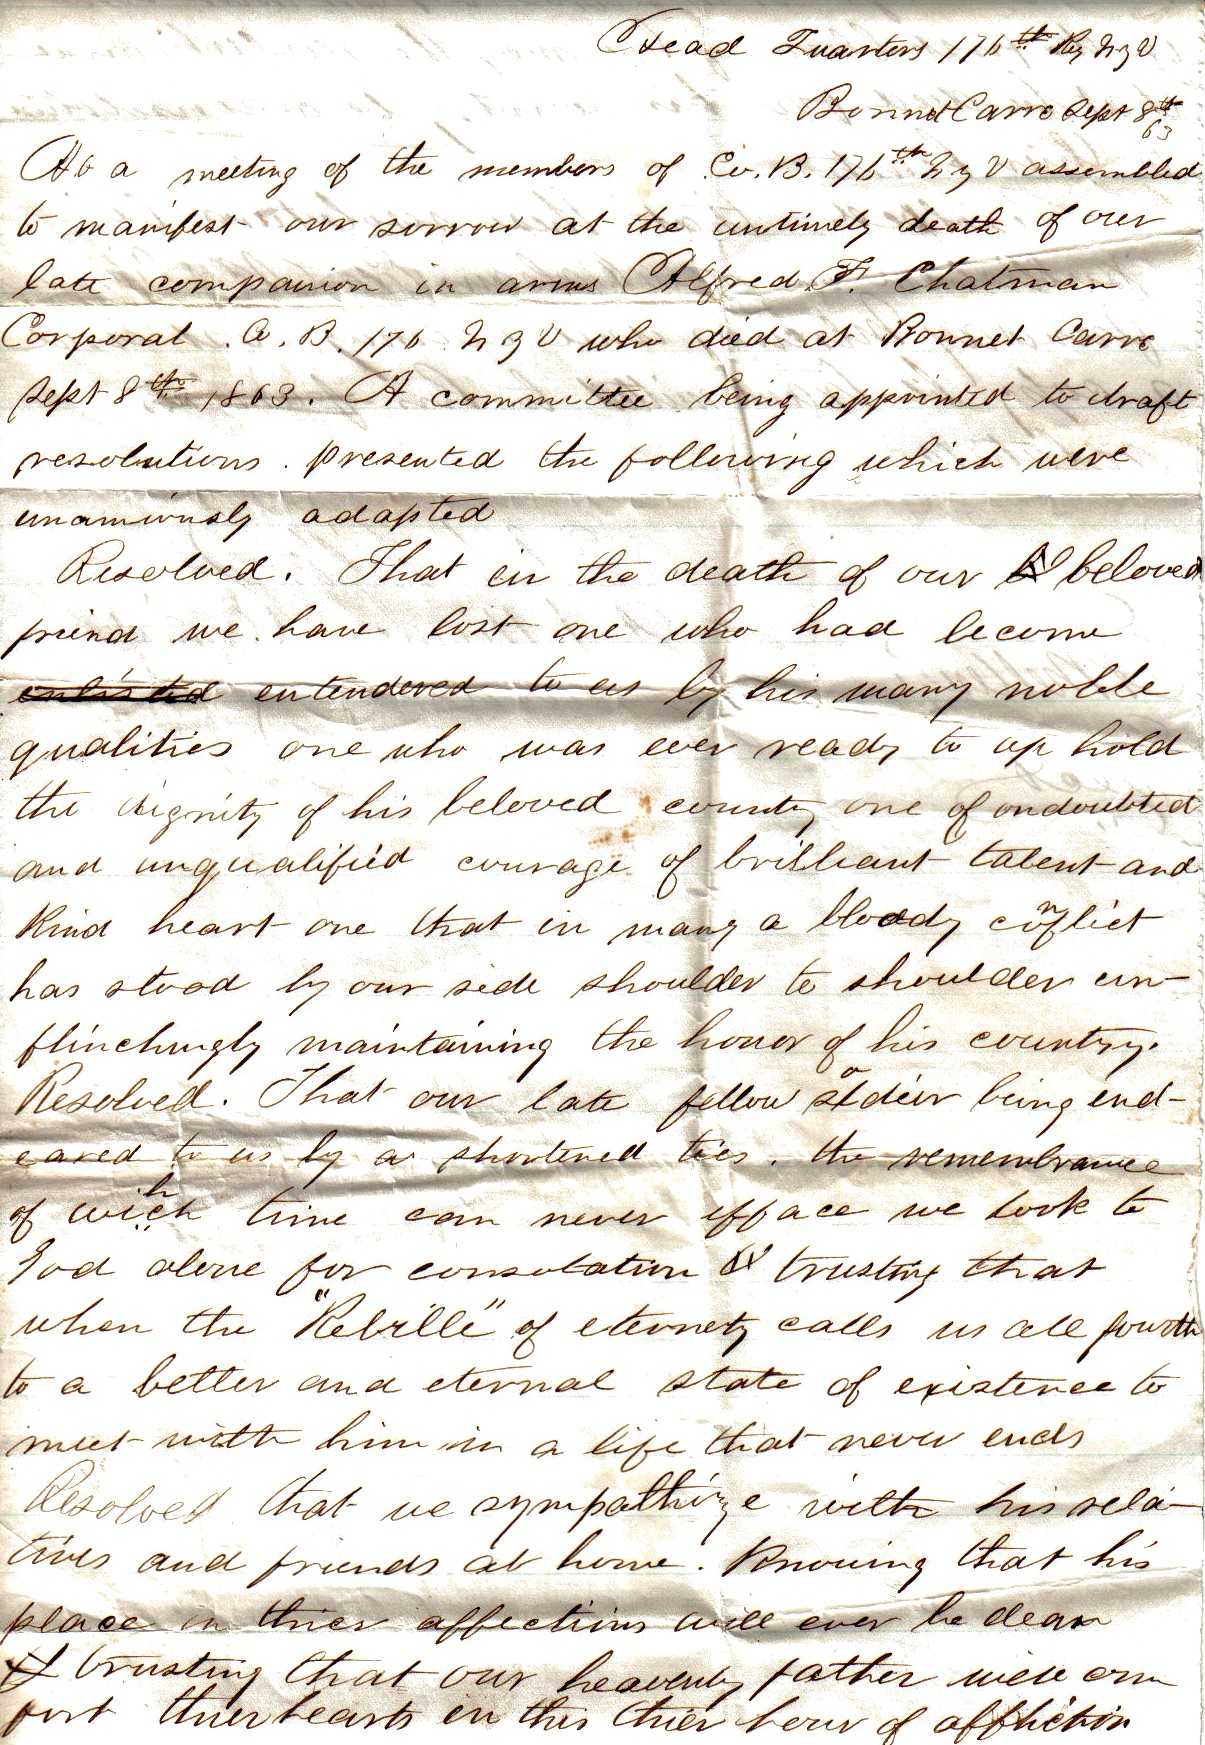 Head Quarters 176th Reg N Y V
Bonnet Carre Sept 8th
63
At a meeting of the members of Co. B. 176th N Y V assembled
to manifest our sorrow at the untimely death of our
late companion in arms Alfred F. Chatman
Corporal Co. B. 176 N Y V who died at Bonnet Carre
Sept 8th 1863. A committee being appointed to draft
resolutions presented the following which were
unamiously adapted
Resolved. That in the death of our beloved
friend we have lost one who had become
enlisted entendered to us by his many noble
qualities one who was ever ready to up hold
the dignity of his beloved county one of ondoubted
and unqualified courage of brilliant talent and
kind heart one that in many a bloody conflict
has stood by our side shoulder to shoulder un-
flinchingly maintaining the honor of his country.
Resolved. That our late fellow soldeir being end-
eared to us by a shortened ties. the remembrance
of which time can never efface we look to
God alone for consolation trusting that
when the "Rebille" of eternety calls us all fourth
to a better and eternal state of existence to
meet with him in a life that never ends
Resolved that we sympathize with his rela-
tives and friends at home. Knowing that his
place in thier affections will ever be dear
& trusting that our heavenly father will com
fort thier hearts in this thier hour of affliction